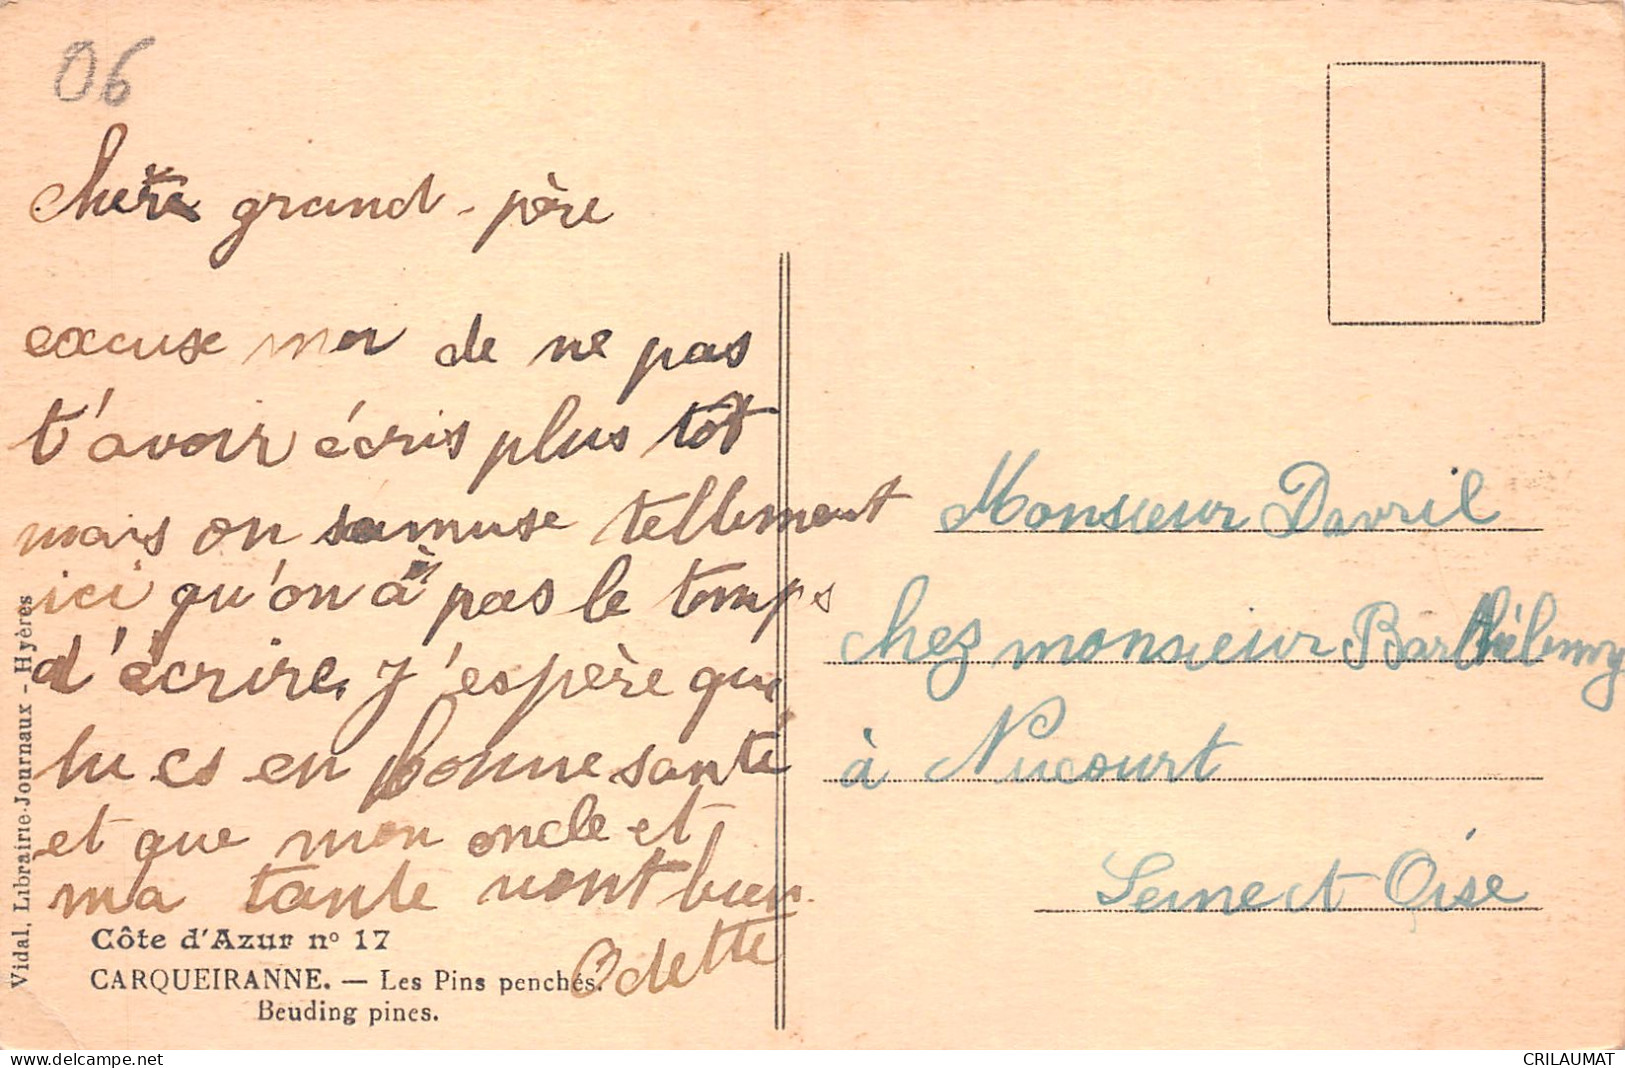 06
Chere grand-père
excuse moi de ne pas
t'avoir écris plus tôt
mais on samuse tellement
ici qu'on à pas le temps
d'écrire. J'espère que
tu es en bonne santé
et que mon oncle et
ma tante vont bien.
Odette
Côte d'Azur nº 17
CARQUEIRANNE. — Les Pins penchés.
Beuding pines.
Vidal, Librairie-Journaux - Hyères
Monsieur Davril
chez monsieur Barthélemy
à Nucourt
Seine et Oise
www.delcampe.net
CRILAUMAT